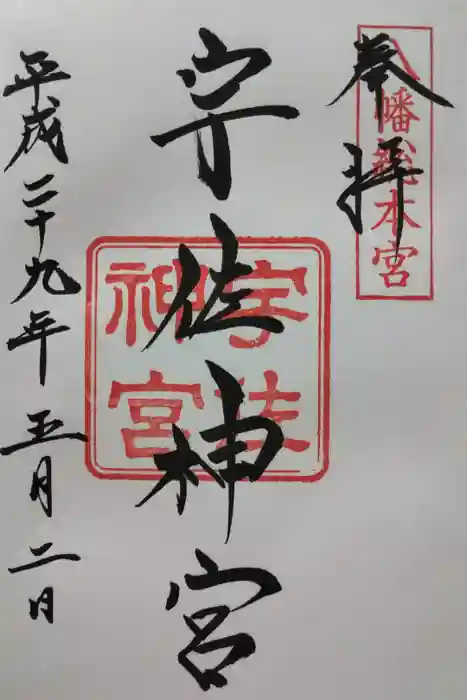 八幡総本宮
奉拝
宇佐神宮
宇佐
神宮
平成二十九年五月二日